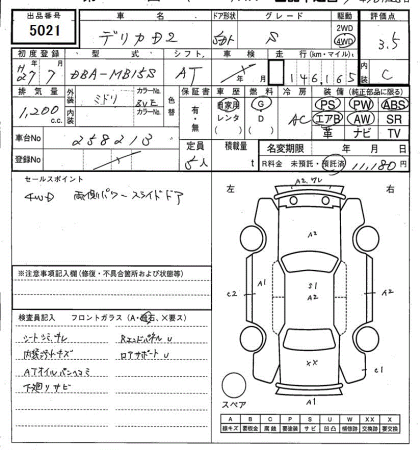 出品番号 車名 ドア形状 グレード 駆動 評価点
5021 デリカD2 S 2WD 4WD 3.5
初度登録 型式 シフト 車検 走行(km・マイル) 内装
H27/7 DBA-MB15S AT 146,165 C
排気量 外装 ミドリ カラーNo. 色替 保証書 車歴 燃料 冷房 装備(純正部品に限る)
1,200 c.c. 内装 カラーNo. 有・無 自家用 レンタ G D AC PS PW ABS
エアB AW SR
革 ナビ TV
車台No 258213 定員 積載量 名変期限 年 月 日
登録No 5人 t R料金 未預託・預託済 11,180 円
セールスポイント
4WD 両側パワースライドドア
左 右
※注意事項記入欄(修復・不具合箇所および状態等)
検査員記入 フロントガラス(A・飛石、×要ス)
シートシミ、スレ Rエンドパネル U
内装キズ ロアサポート U
ATオイルパンヘコミ
下廻りサビ
A2
A2
S1
A2
A1
A2
C2
A1
XX
C1
A1
スペア
A B C P S U W X XX
線キズ 要板金 腐蝕 要塗装 サビ 凹凸 補修跡 要交換 交換済